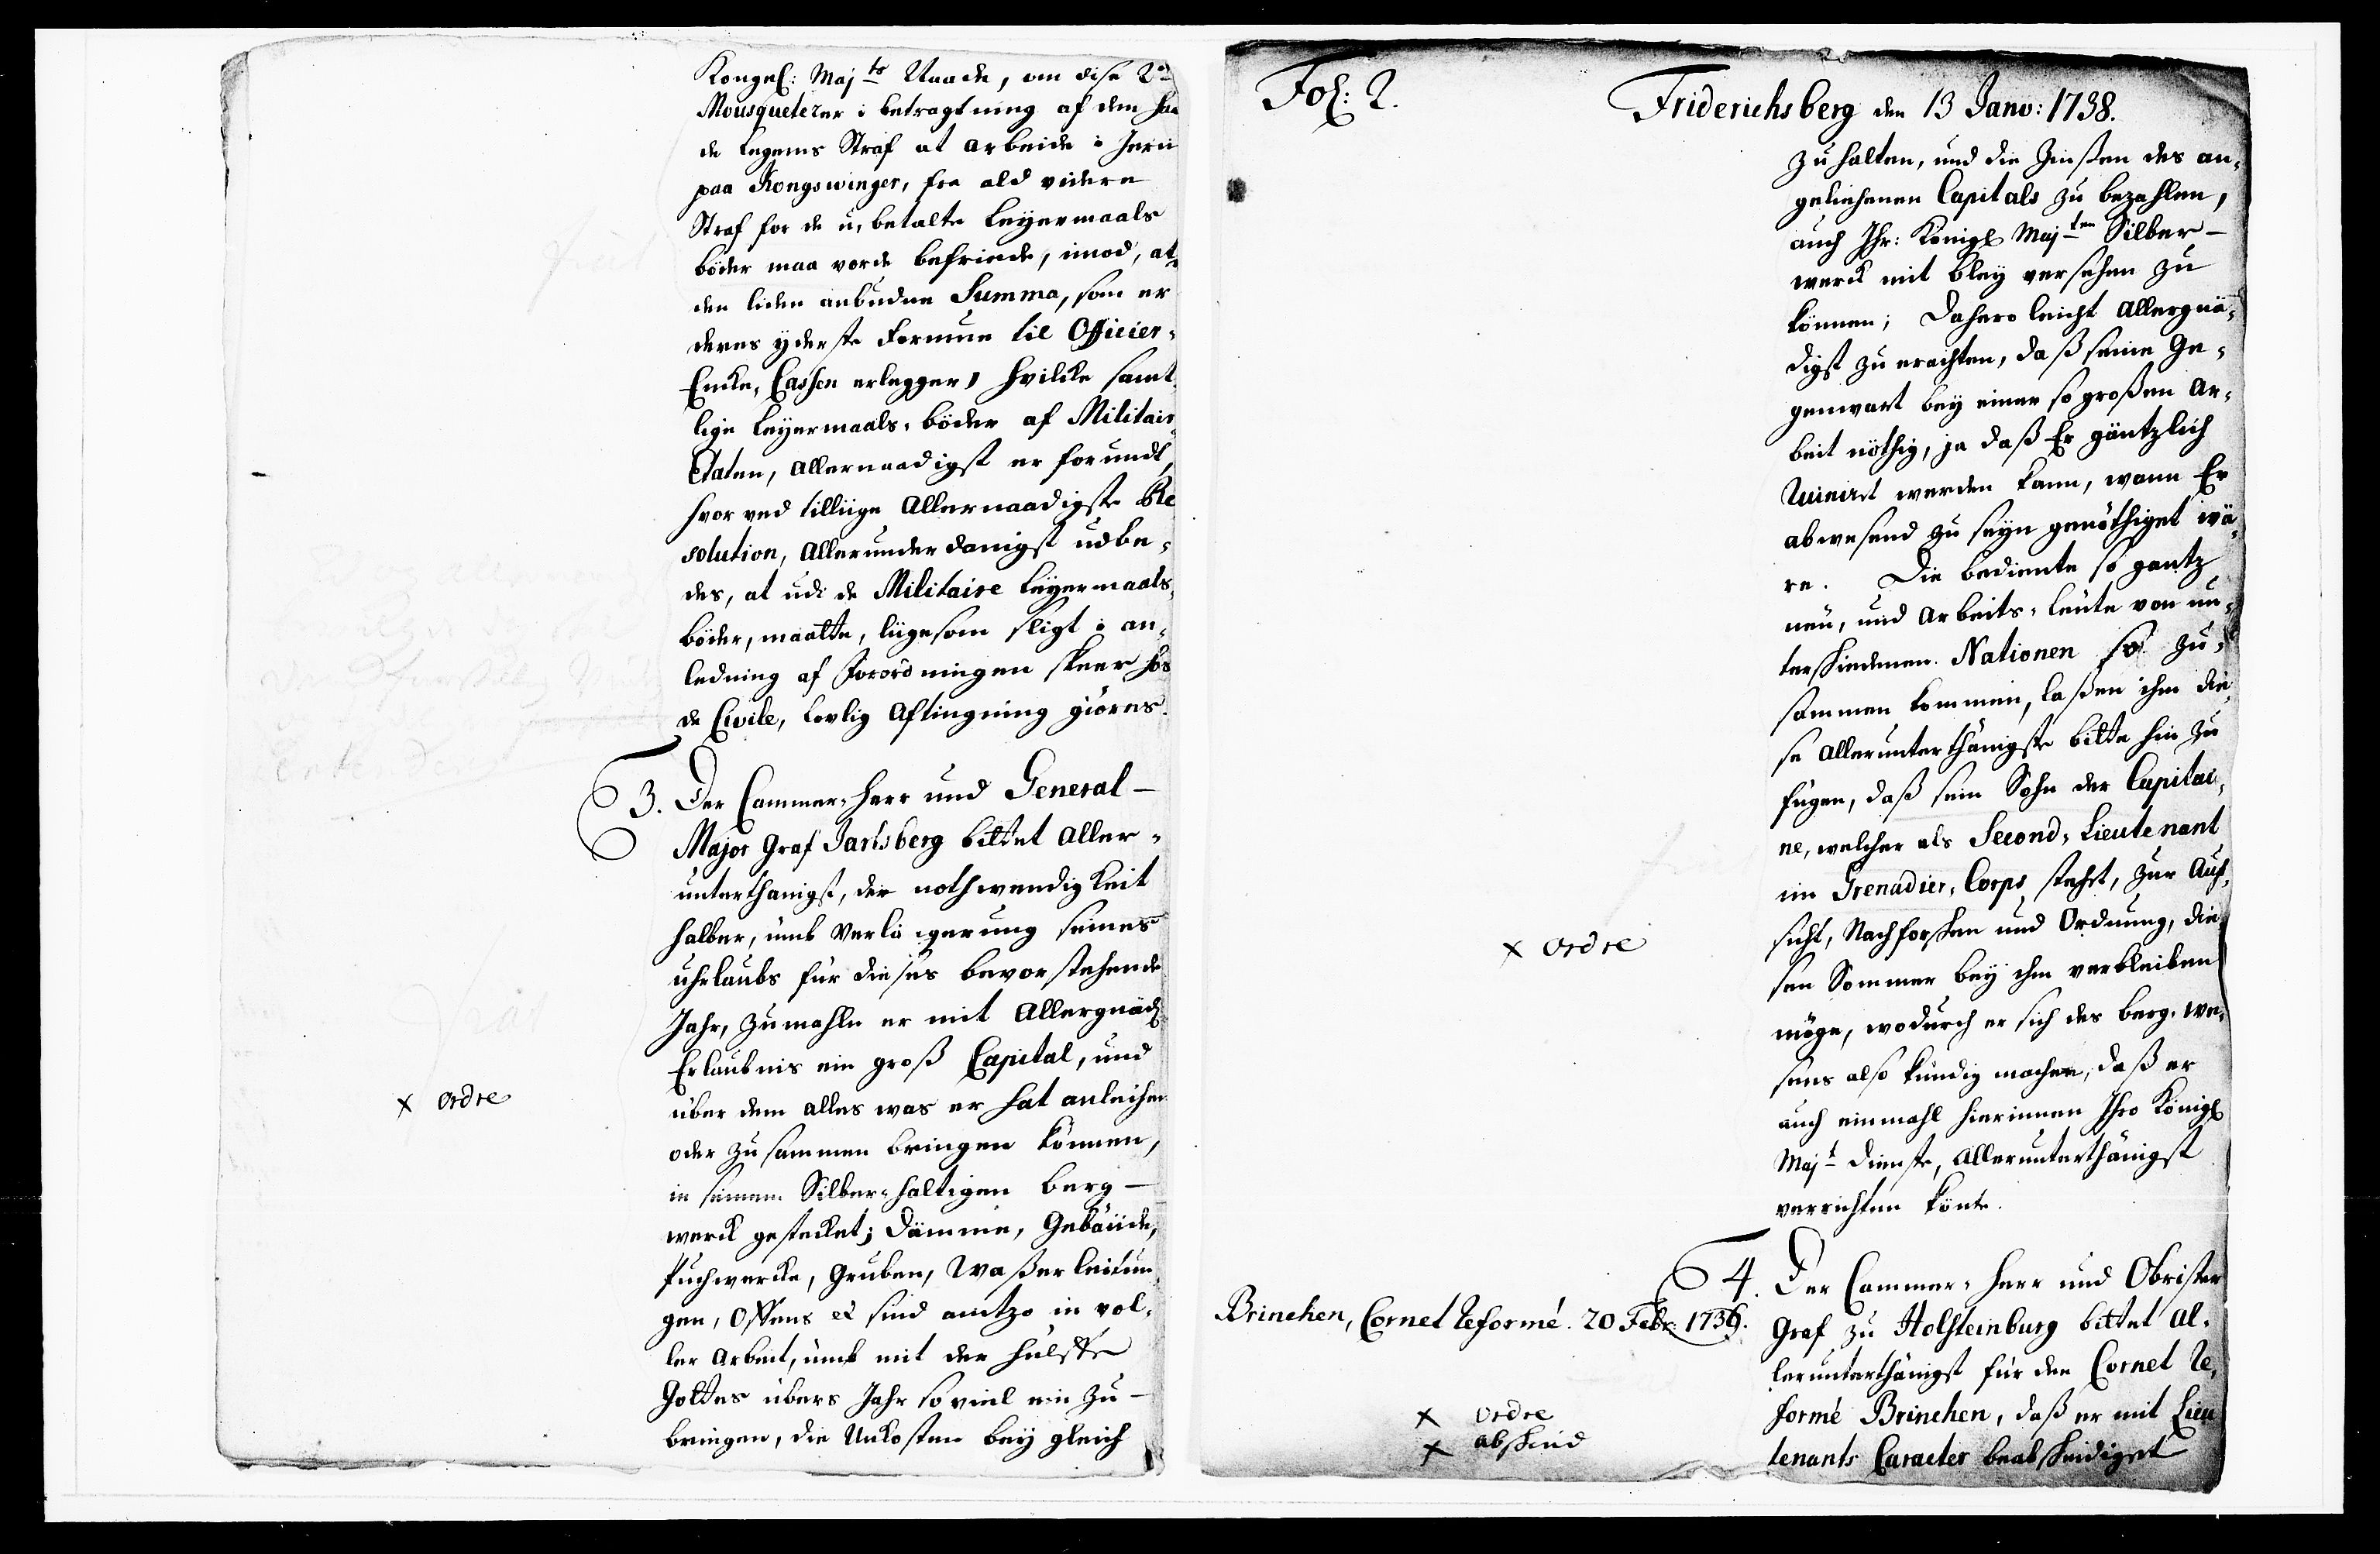 Kongel: Maj:ts Naade, om dise 2de
Mousqueterer i betragtning af den ha
de legems Straf at arbeide i Jern
paa Kongswinger, fra ald videre
Straf for de u-betalte Leyermaals
böder maa vorde befriede, imod, at
den liden anbudne Summa, som er
deres yderste Formue til Officier-
Enke-Cassen erlegges, hvilke samt-
lige Leyermaals-böder af Militair-
Etaten, Allernaadigst er forundt,
hvorved tillige Allernaadigste Re
solution, Allerunderdanigst udbe-
des, at udi de Militaire Leyermaals-
böder, maatte, liigesom sligt i an-
ledning af Forordningen skeer hos
de Civile, lovlig Aftingning giöres.
3. Der Cammer-Herr und General-
Major Graf Jarlsberg bittet Aller-
unterthänigst, der nothwendigkeit
halber, umb Verlängerung seines
uhrlaubs für dieses bevorstehende
Jahr, zumahle er mit Allergnäd:
Erlaubnis ein groß Capital, und
über dem alles was er hat anleihen
oder zusammen bringen können,
in seinem Silber-haltigen berg-
werck gestecket; Dämme, Gebäüde,
Puchwercke, Gruben, Waßerleitun
gen, Offens etc sind anitzo in vol-
ler Arbeit, umb mit der Hülffe
Gottes übers Jahr so viel ein zu-
bringen, die Unkosten bey gleich
x ordre
Fol: 2.
Friderichsberg den 13 Janv: 1738.
zu halten, und die Zinsten des an-
geliehenen Capitals zu bezahlen,
auch Ihr: Königl Maj:ten Silber-
werck mit Bley versehen zu
können; Dahero leicht Allergnä-
digst zu erachten, daß seine Ge-
genwart bey einer so großen Ar-
beit nöthig, ja daß Er gäntzlich
Ruinirt werden kann, wann Er
abwesend zu seyn genöthiget wä-
re. Die bediente so gantz
neu, und Arbeits-leute von un-
terschiedenen Nationen so zu-
sammen kommen, laßen ihm die-
se Allerunterthänigste bitte hin zu
fügen, daß sein Sohn der Capitai-
ne, welcher als Second-Lieutenant
im Grenadier-Corps stehet, zur Auf-
sicht, Nachforschen und Ordnung, die-
sen Sommer bey ihm verbleiben
möge, wodurch er sich des berg-we-
sens also kundig machen, daß er
auch einmahl hierinnen Ihro Königl
Maj:t Dienste, Allerunterthänigst
verrichten könte.
x ordre
4. Der Cammer-Herr und Obrister
Graf zu Holsteinburg bittet Al-
lerunterthänigst für den Cornet Re-
formé Brincken, daß er mit Lieu
tenants Caracter beabscheidiget
Brincken, Cornet Reformé. 20 Febr: 1736.
x ordre
x abscheid